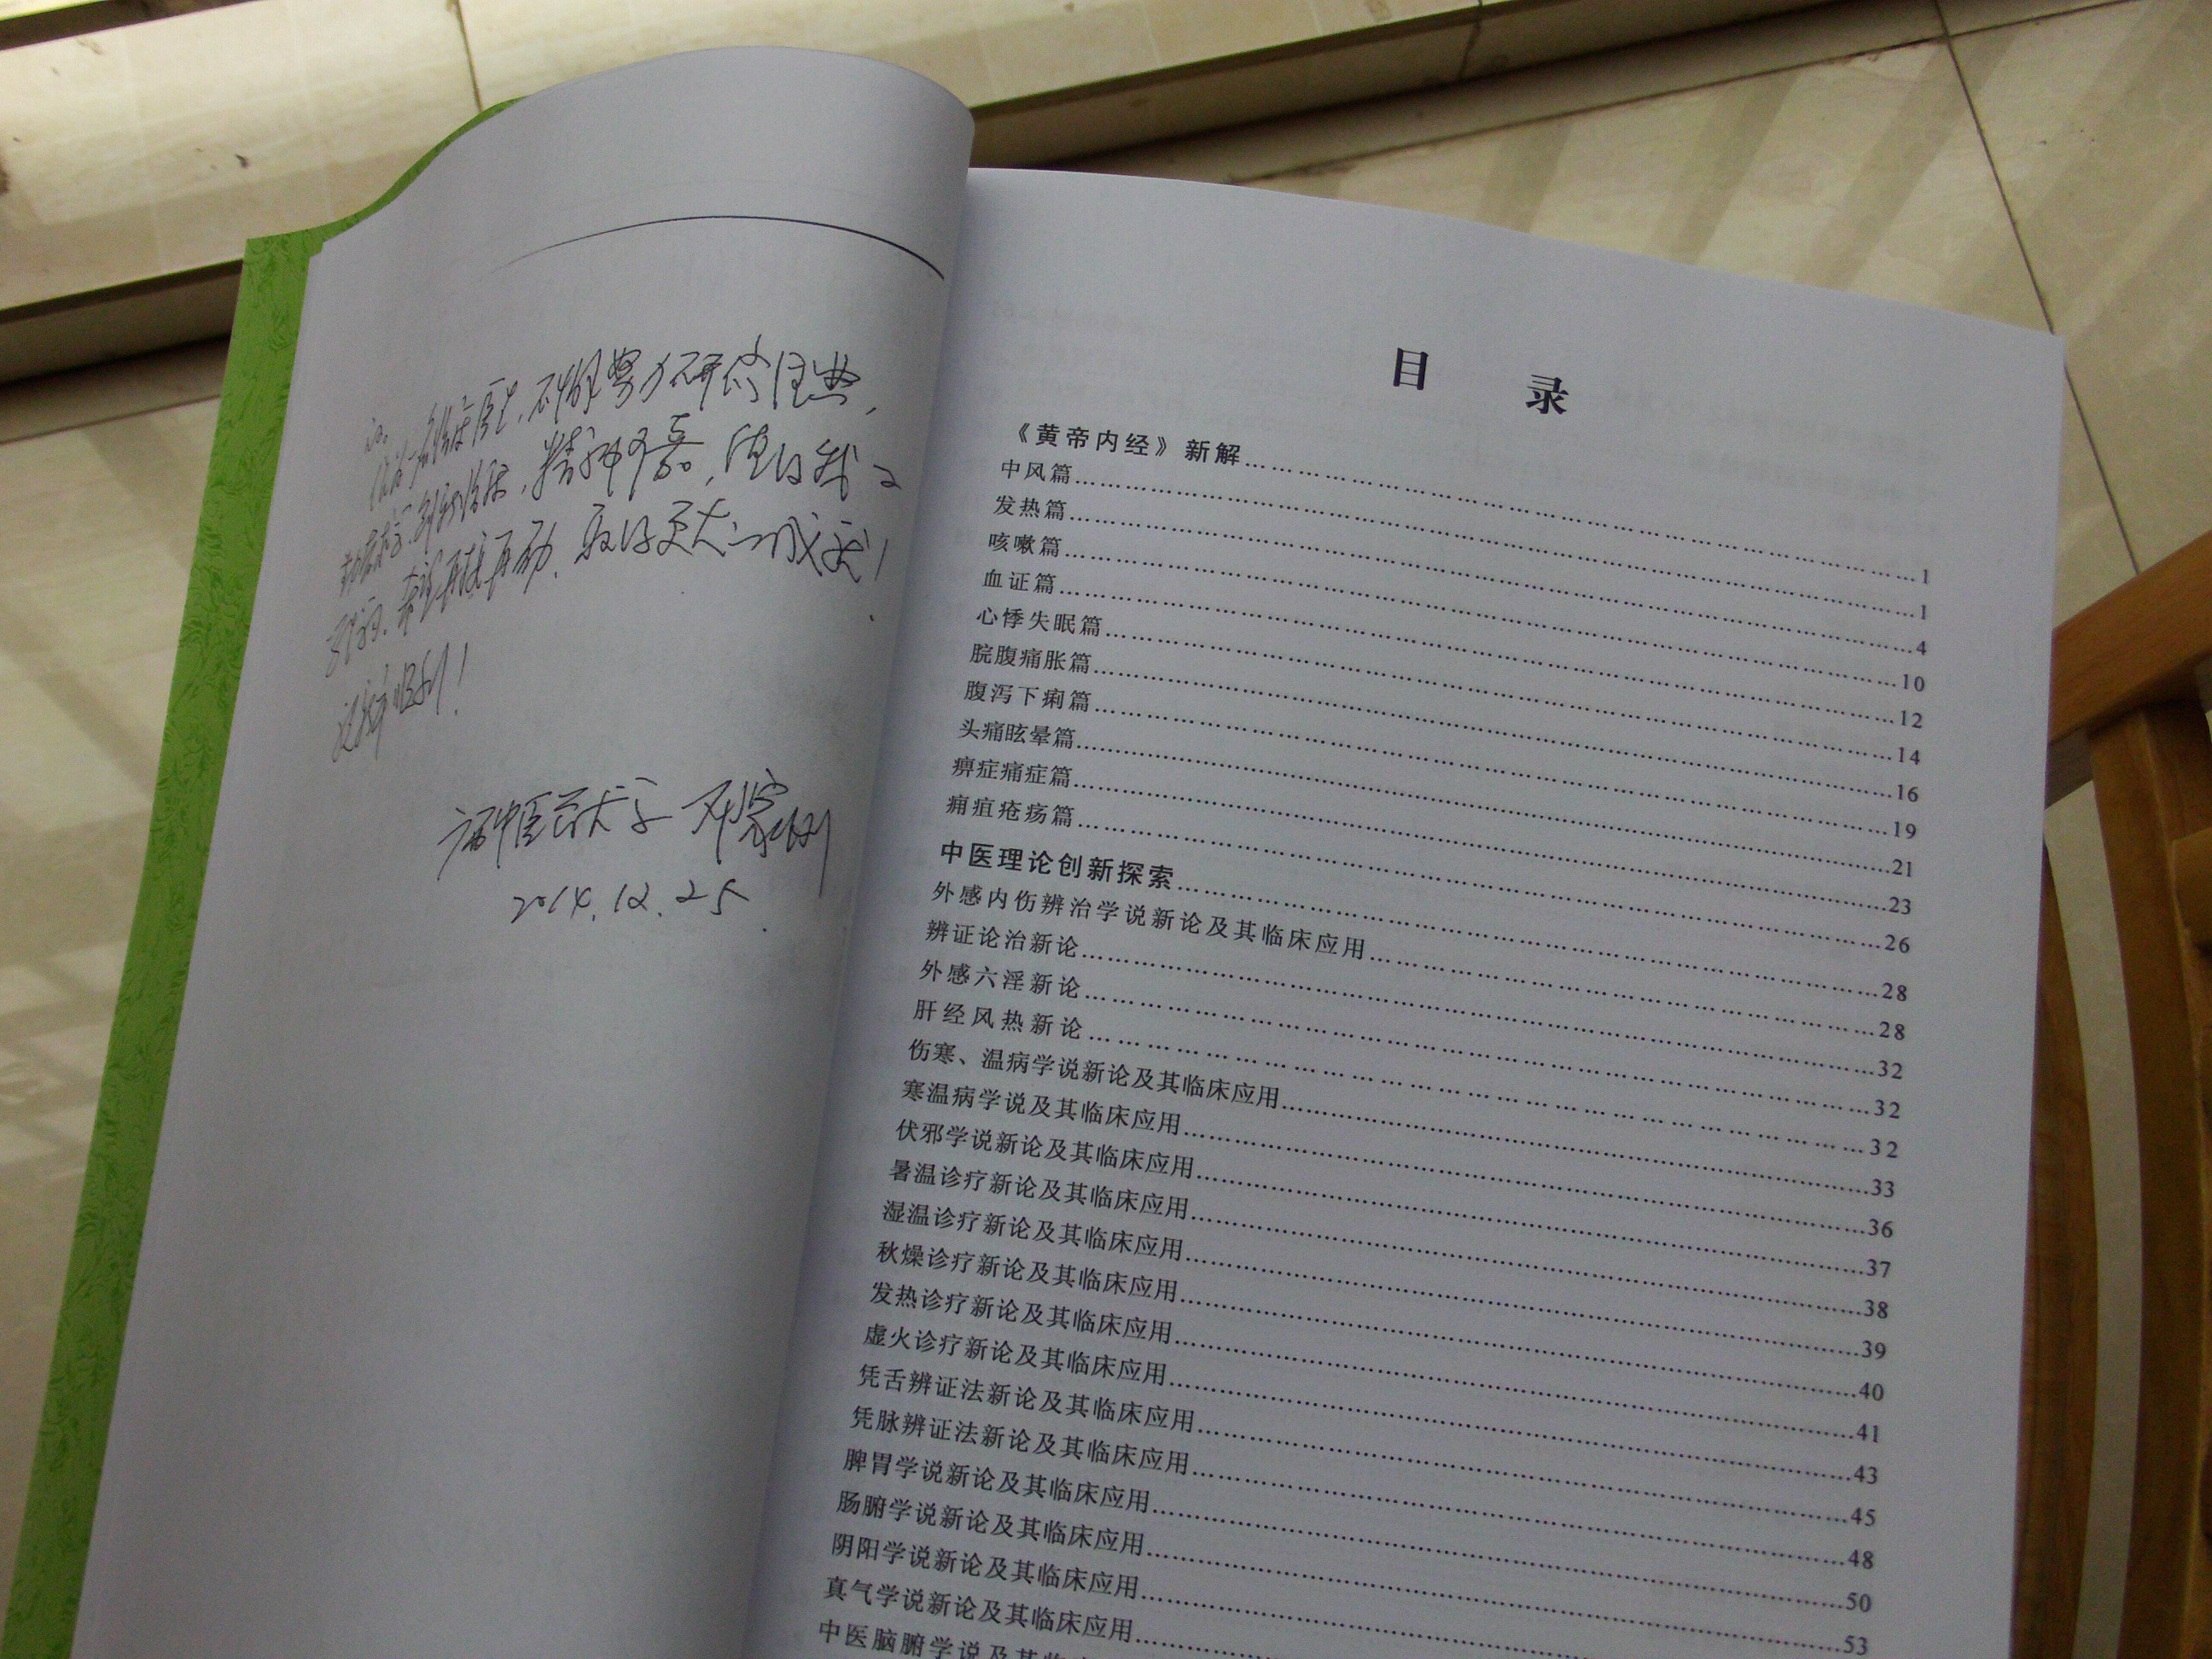 作为一名临床医生,不懈努力研究经典,
精神可嘉,值得我们
学习,希望再接再励,取得更大的成就!
顺利!
广西中医药大学 邓家刚
2014.12.25
目 录
《黄帝内经》新解……1
中风篇……1
发热篇……4
咳嗽篇……10
血证篇……12
心悸失眠篇……14
脘腹痛胀篇……16
腹泻下痢篇……19
头痛眩晕篇……21
痹症痛症篇……23
痈疽疮疡篇……26
中医理论创新探索……28
外感内伤辨治学说新论及其临床应用……28
辨证论治新论……32
外感六淫新论……32
肝经风热新论……32
伤寒、温病学说新论及其临床应用……33
寒温病学说及其临床应用……36
伏邪学说新论及其临床应用……37
暑温诊疗新论及其临床应用……38
湿温诊疗新论及其临床应用……39
秋燥诊疗新论及其临床应用……40
发热诊疗新论及其临床应用……41
虚火诊疗新论及其临床应用……43
凭舌辨证法新论及其临床应用……45
凭脉辨证法新论及其临床应用……48
脾胃学说新论及其临床应用……50
肠腑学说新论及其临床应用……53
阴阳学说新论及其临床应用……
真气学说新论及其临床应用……
中医脑腑学说及其